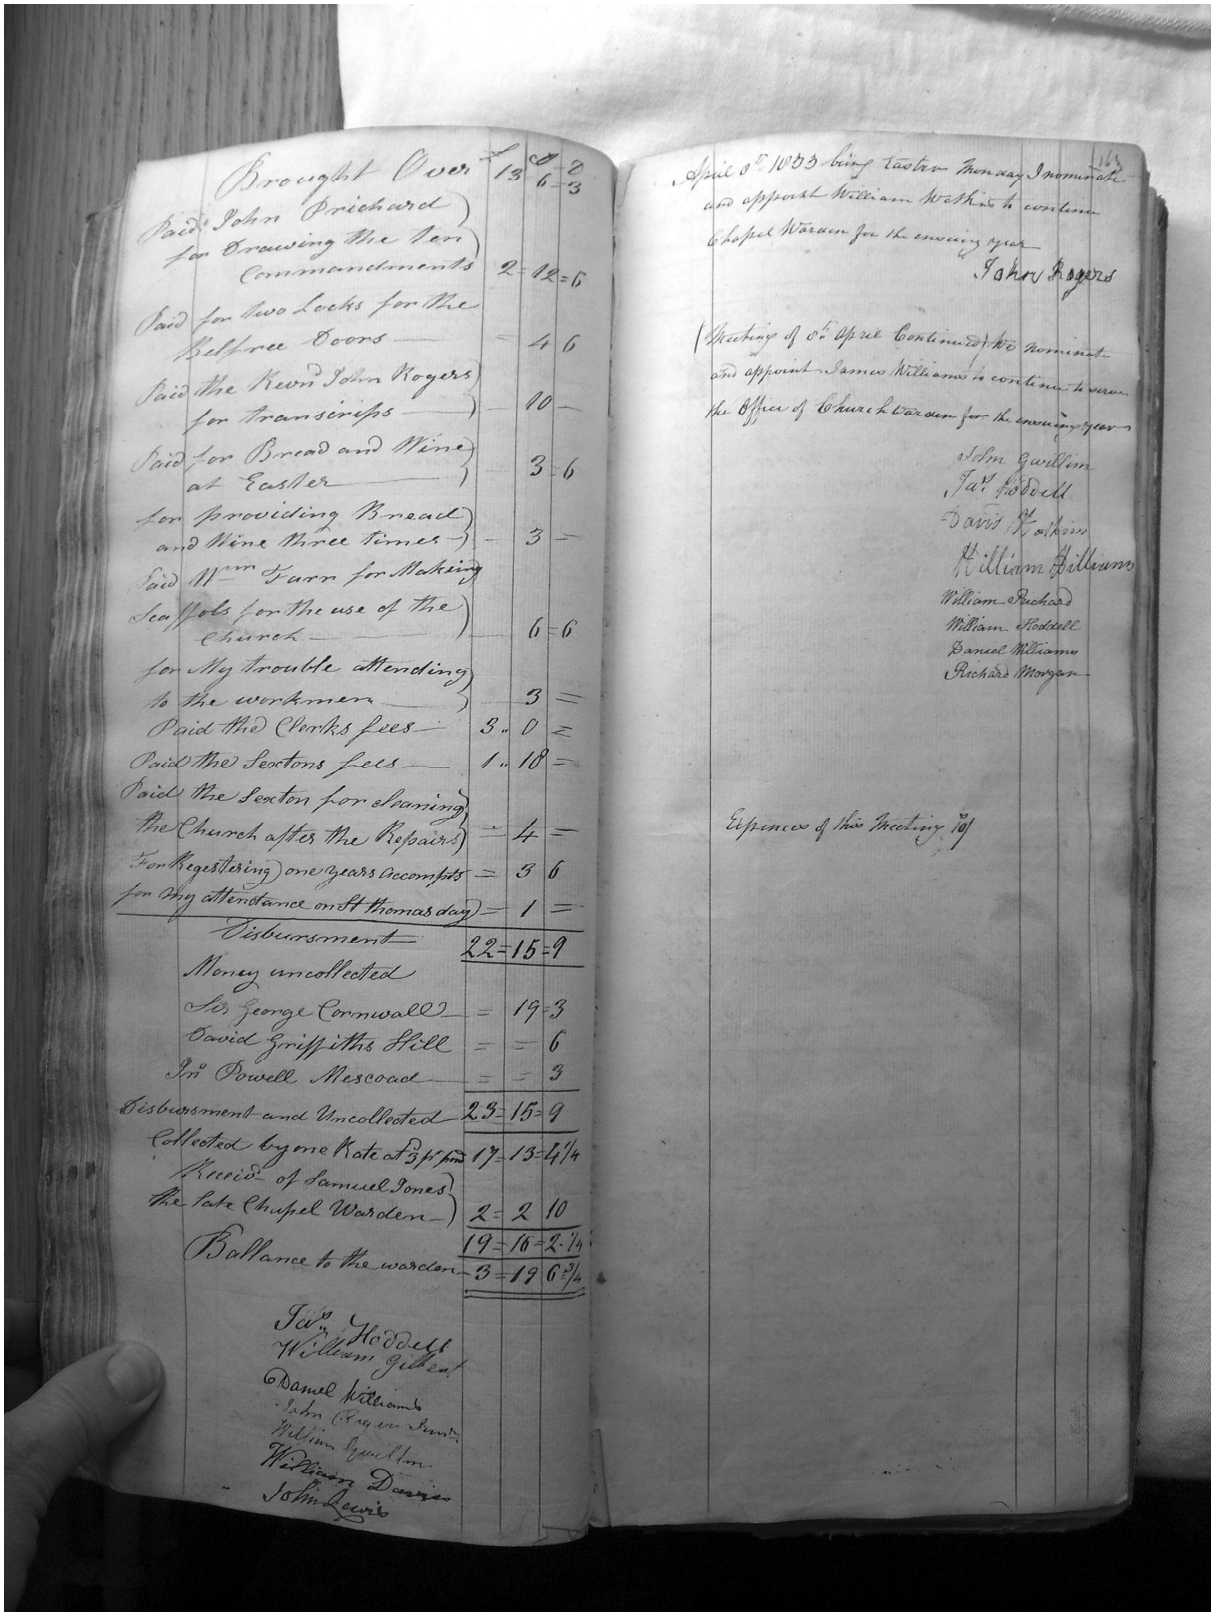 Brought Over £ S D
13 = 6 = 3
Paid John Prichard
for Drawing the ten
Commandments 2 = 12 = 6
Paid for two Locks for the
Belfree Doors = 4 6
Paid the Revnd John Rogers
for transcrips — 10 —
Paid for Bread and Wine
at Easter 3 = 6
for providing Bread
and Wine three times — 3 =
Paid Wm Farr for Makeing
Scaffols for the use of the
Church 6 = 6
for My trouble attending
to the workmen 3 =
Paid the Clerks fees 3 .. 0 =
Paid the Sextons fees 1 .. 18 =
Paid the Sexton for cleaning
the Church after the Repairs = 4 =
For Regestering one years accompts = 3 6
for my attendance on St thomas day = 1 =
Disbursment 22 = 15 = 9
Money uncollected
Sir George Cornwall = 19 = 3
David Griffiths Hill = = 6
Jno Powell Mescoad = = 3
Disbursment and Uncollected 23 = 15 = 9
Collected by one Rate at 3d pr pnd 17 = 13 = 4 1/4
Receivd of Samuel Jones
the late Chapel Warden 2 = 2 10
19 = 16 = 2 1/4
Ballance to the warden 3 = 19 6 3/4
Jas Hoddell
William
Daniel Williams
John
William Gwillim
William Davies
John Lewis
163
April 8th 1833 being Easter Monday I nominate
and appoint William Watkins to continue
Chapel Warden for the ensuing year
John Rogers
(Meeting of 8th April Continued) We nominate
and appoint James Williams to continue to serve
the Office of Church warden for the ensuing year
John Gwillim
Jas Hoddell
Davis Watkins
William Williams
William Prichard
William Hoddell
Daniel Williams
Richard Morgan
Expences of this Meeting 10/